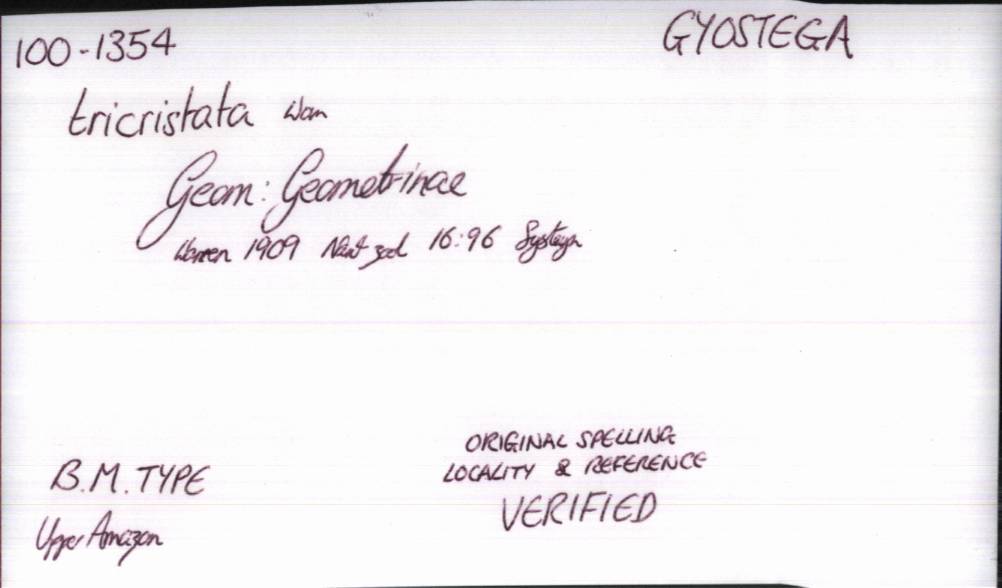 100-1354
GYOSTEGA
tricristata Warr
Geom: Geometrinae
Warren 1909 Novit zool 16:96 Systega
ORIGINAL SPELLING
LOCALITY & REFERENCE
VERIFIED
B.M. TYPE
Upper Amazon